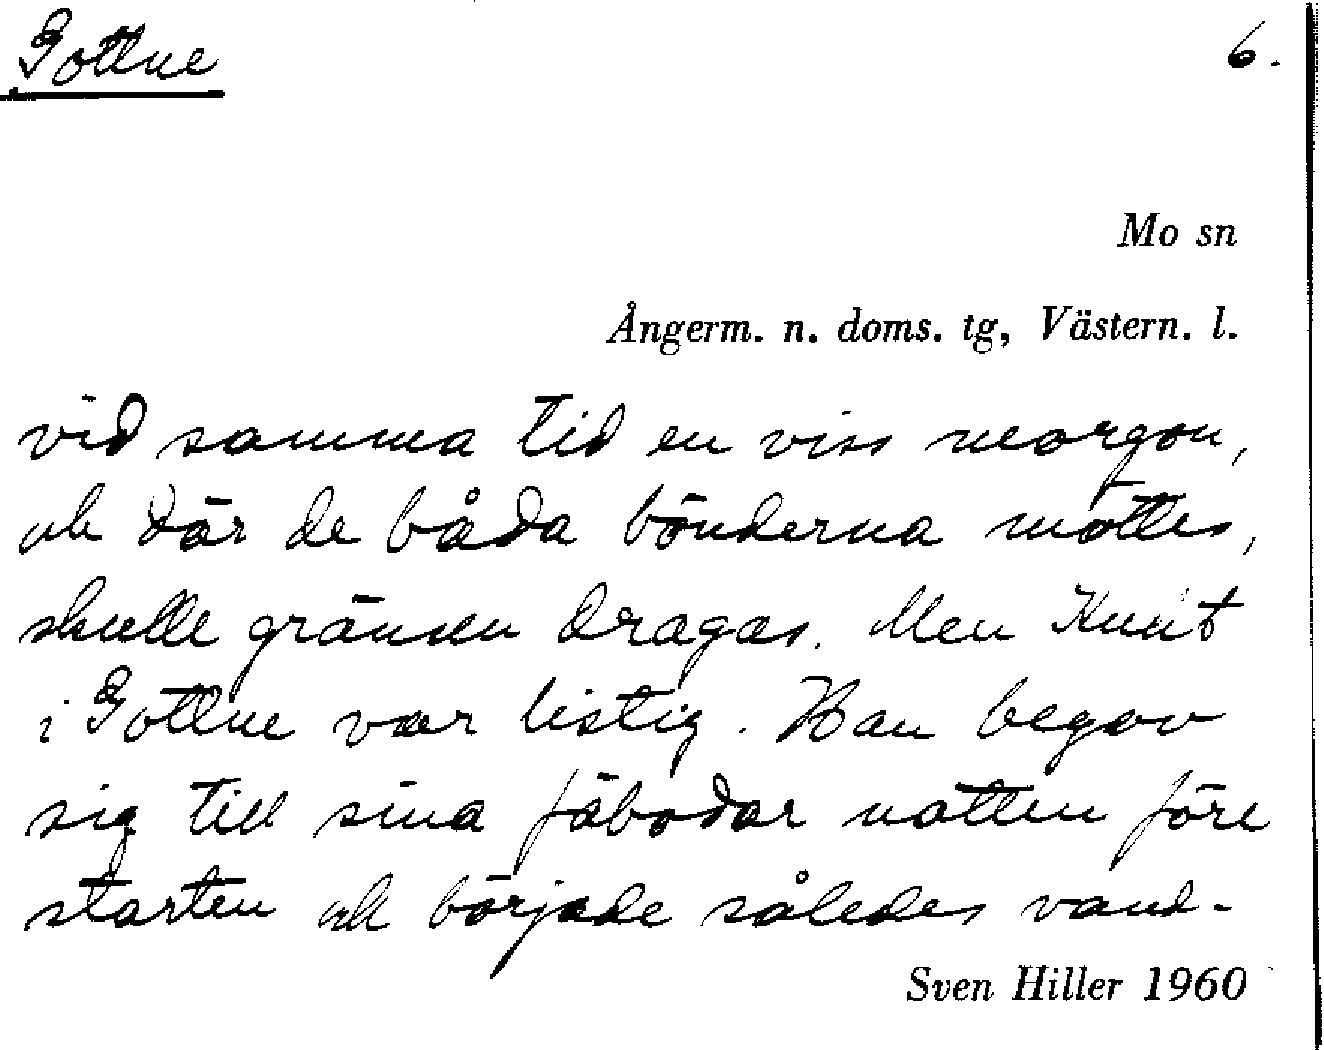 Gottne 6.
Mo sn
Ångerm. n. doms. tg, Västern. l.
vid samma tid en viss morgon,
och där de båda bönderna möttes,
skulle gränsen dragas. Men Knut
i Gottne var listig. Han begav
sig till sina fäbodar natten före
starten och började således vand-
Sven Hiller 1960